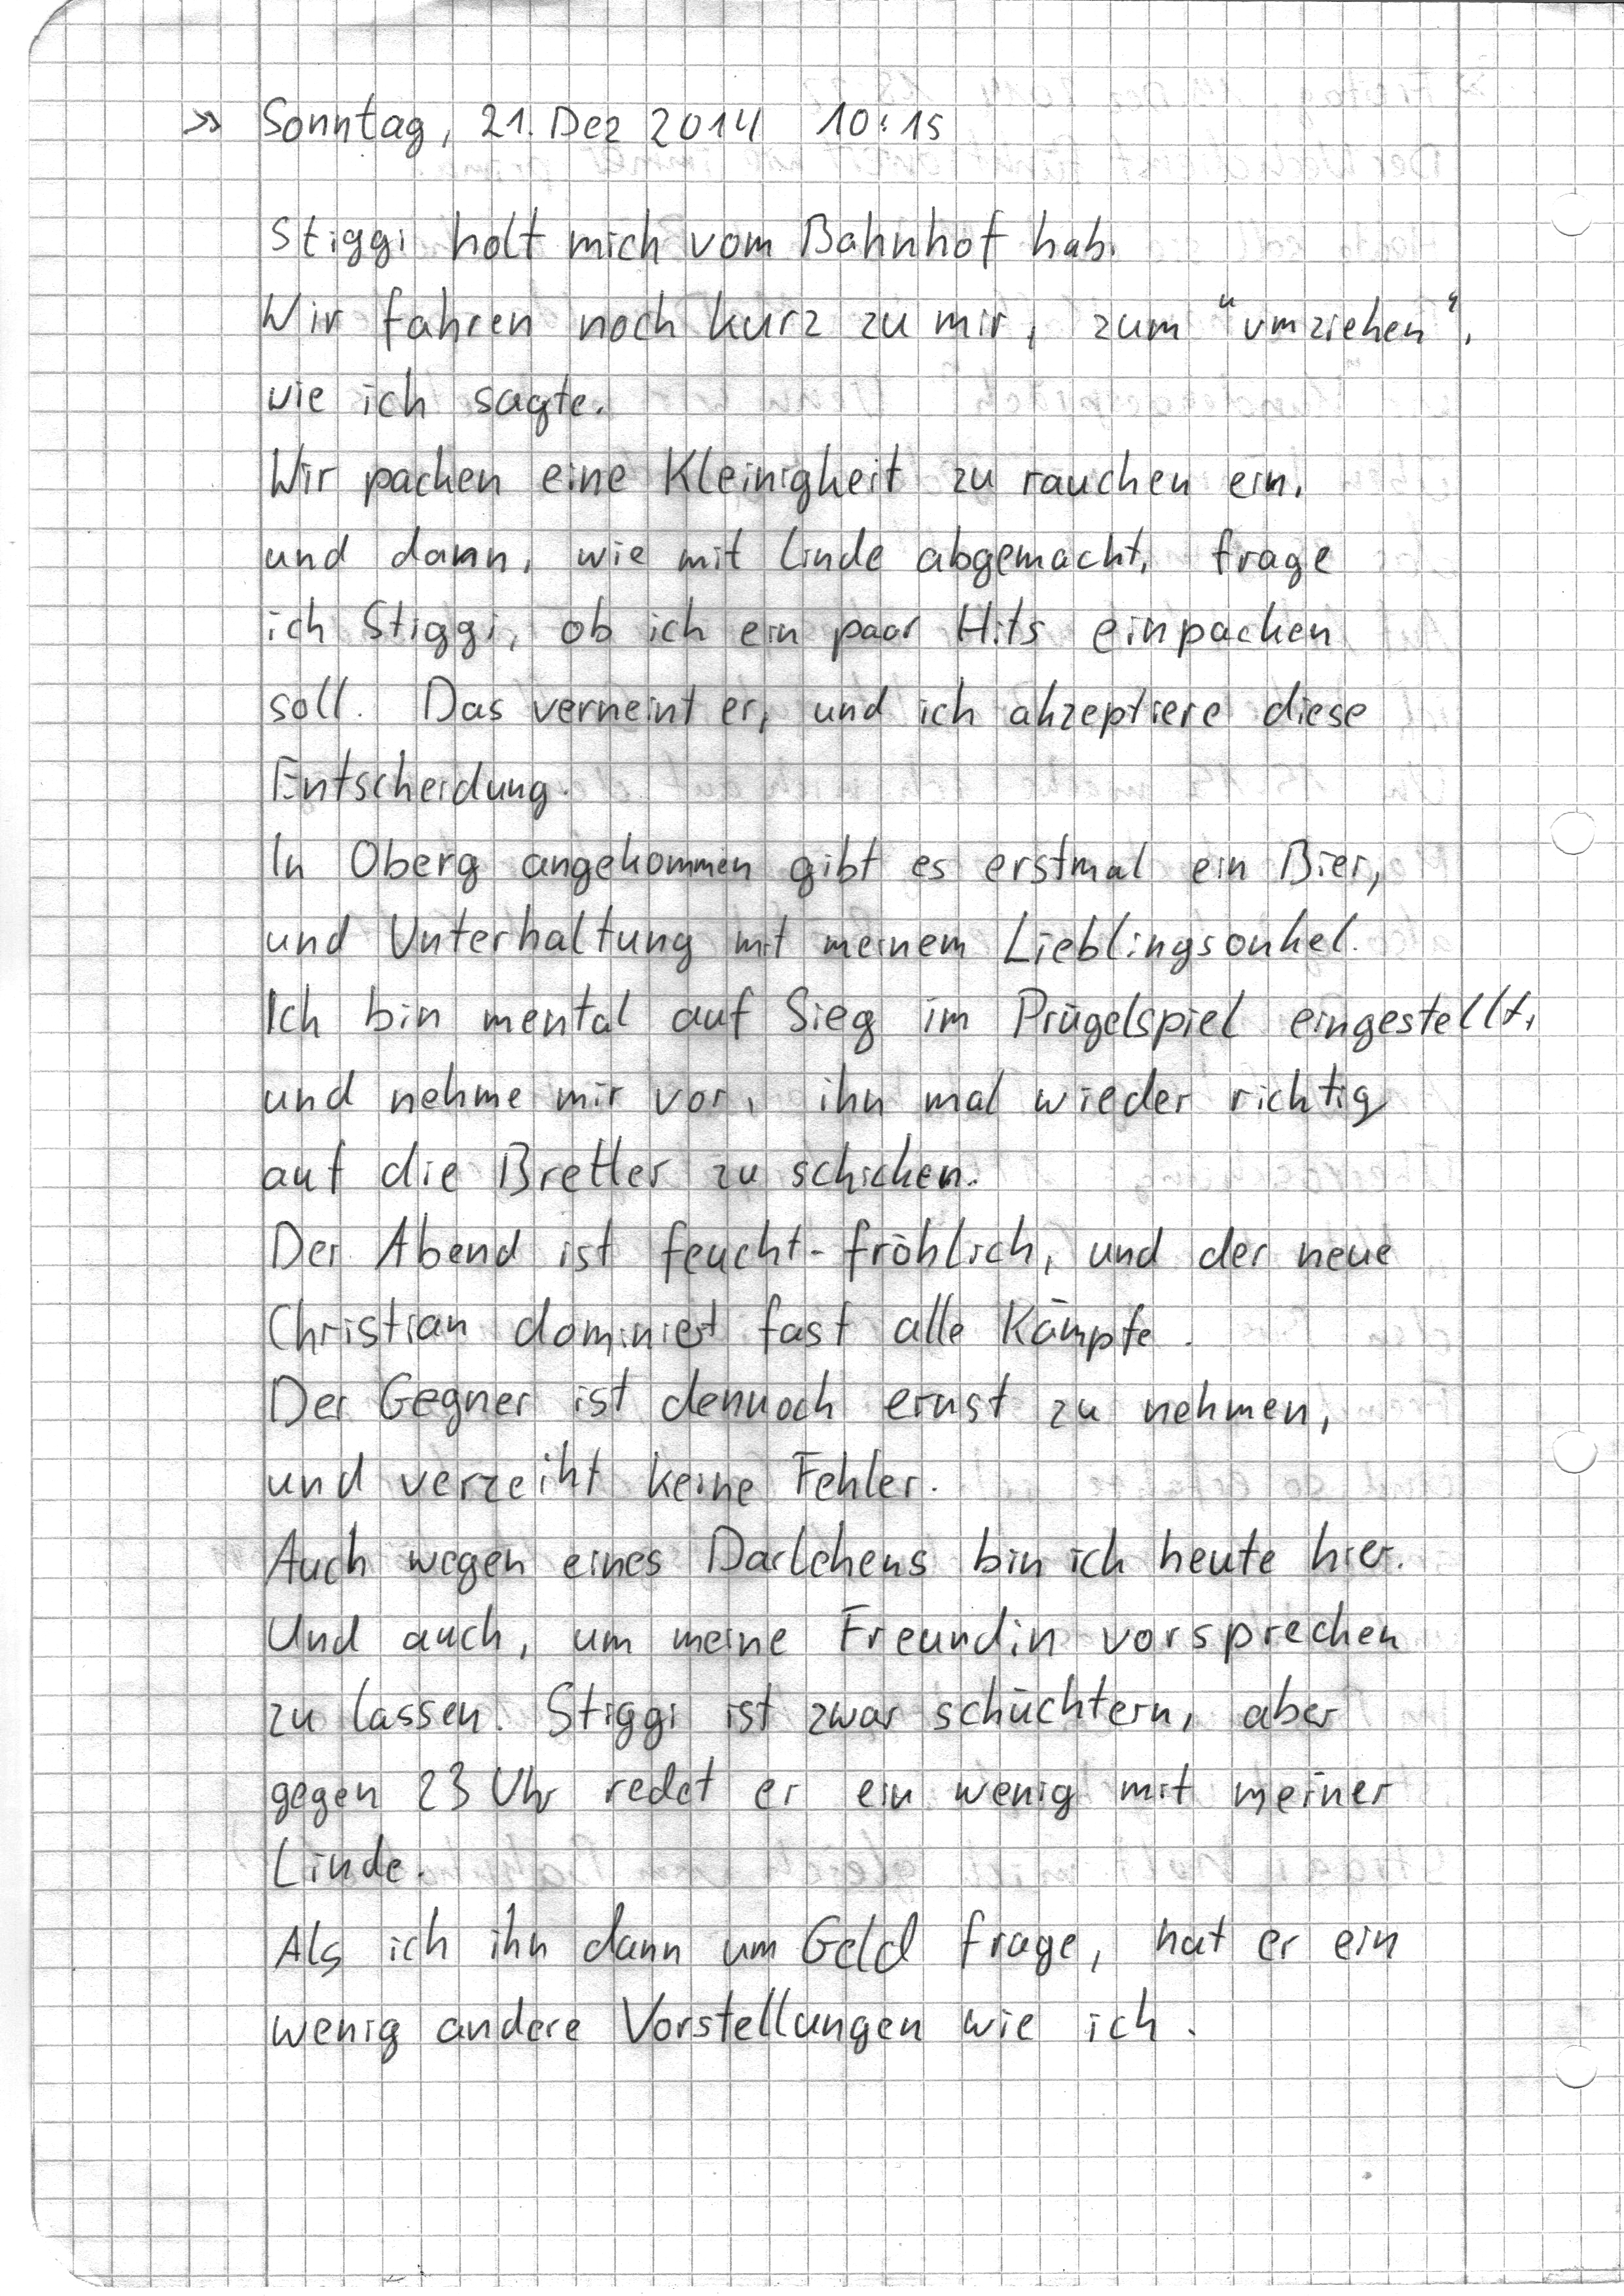 >> Sonntag, 21. Dez 2014 10:15
Stiggi holt mich vom Bahnhof hab.
Wir fahren noch kurz zu mir, zum "umziehen",
wie ich sagte.
Wir packen eine Kleinigheit zu rauchen ein,
und dann, wie mit Linde abgemacht, frage
ich Stiggi, ob ich ein paar Hits einpacken
soll. Das verneint er, und ich akzeptiere diese
Entscheidung.
In Oberg angekommen gibt es erstmal ein Bier,
und Unterhaltung mit meinem Lieblingsonkel.
Ich bin mental auf Sieg im Prügelspiel eingestellt,
und nehme mir vor, ihn mal wieder richtig
auf die Bretter zu schicken.
Der Abend ist feucht-fröhlich, und der neue
Christian dominiert fast alle Kämpfe.
Der Gegner ist dennoch ernst zu nehmen,
und verzeiht keine Fehler.
Auch wegen eines Darlehens bin ich heute hier.
Und auch, um meine Freundin vorsprechen
zu lassen. Stiggi ist zwar schüchtern, aber
gegen 23 Uhr redet er ein wenig mit meiner
Linde.
Als ich ihn dann um Geld frage, hat er ein
wenig andere Vorstellungen wie ich.